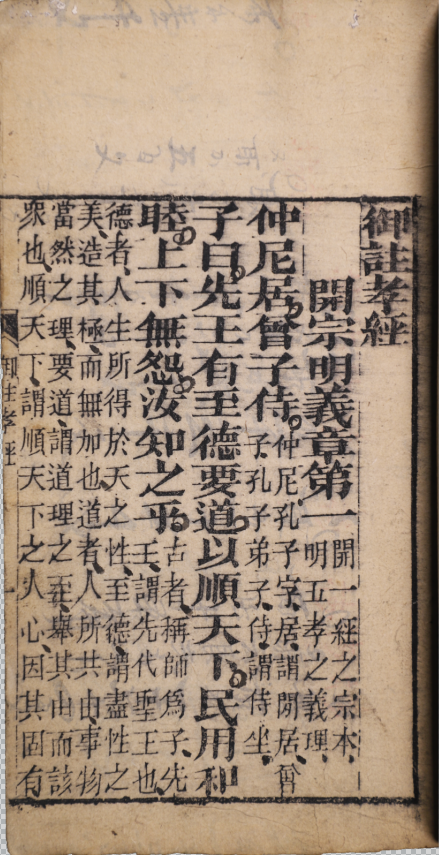 御註孝經
開宗明義章第一
開一經之宗本、
明五孝之義理、
仲尼居。曾子侍。
仲尼、孔子字、居、謂閒居、曾
子、孔子弟子、侍、謂侍坐、
子曰。先王有至德要道。以順天下。民用和
睦。上下無怨。汝知之乎。
古者、稱師爲子、先
王、謂先代聖王也、
德者、人生所得於天之性、至德、謂盡性之
美、造其極、而無加也、道者、人所共由、事物
當然之理、要道、謂道理之至、舉其由而該
衆也、順天下、謂順天下之人心、因其固有
御註孝經
一